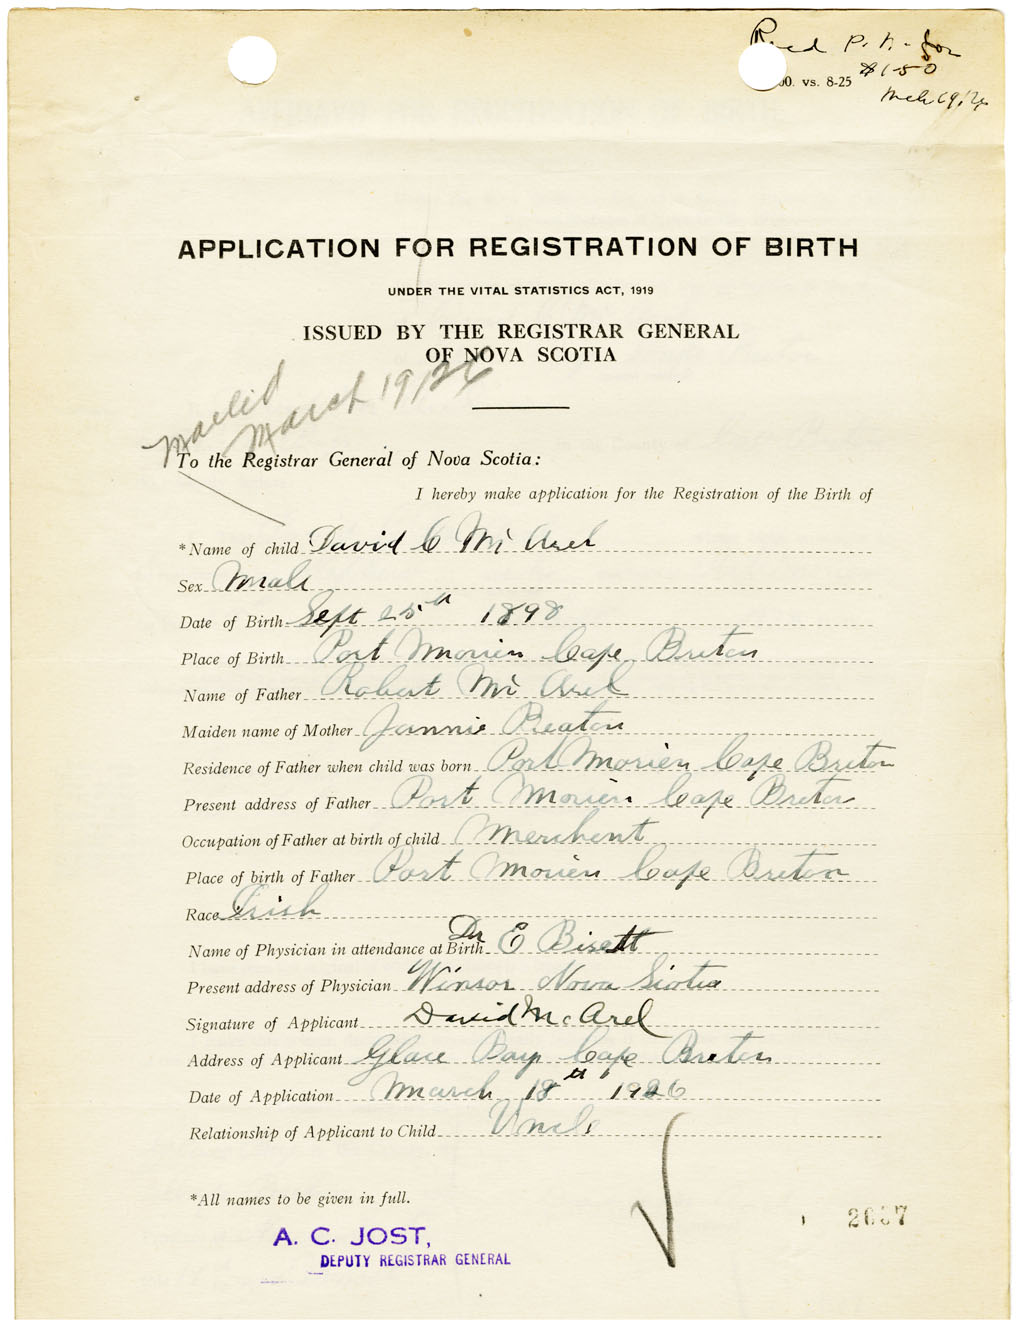 Recd P. N. for
$1.50
00. vs. 8-25
Mch 19/26
APPLICATION FOR REGISTRATION OF BIRTH
UNDER THE VITAL STATISTICS ACT, 1919
ISSUED BY THE REGISTRAR GENERAL
OF NOVA SCOTIA
Mailed
March 19/26
To the Registrar General of Nova Scotia:
I hereby make application for the Registration of the Birth of
*Name of child David C Mc Arel
Sex Male
Date of Birth Sept 25th 1898
Place of Birth Port Morien Cape Breton
Name of Father Robert Mc Arel
Maiden name of Mother Jannie Beaton
Residence of Father when child was born Port Morien Cape Breton
Present address of Father Port Morien Cape Breton
Occupation of Father at birth of child Merchent
Place of birth of Father Port Morien Cape Breton
Race Irish
Name of Physician in attendance at Birth Dr E Bisett
Present address of Physician Winsor Nova Siotia
Signature of Applicant David McArel
Address of Applicant Glace Bay Cape Breton
Date of Application March 18th 1926
Relationship of Applicant to Child Uncle
*All names to be given in full.
A. C. JOST,
DEPUTY REGISTRAR GENERAL